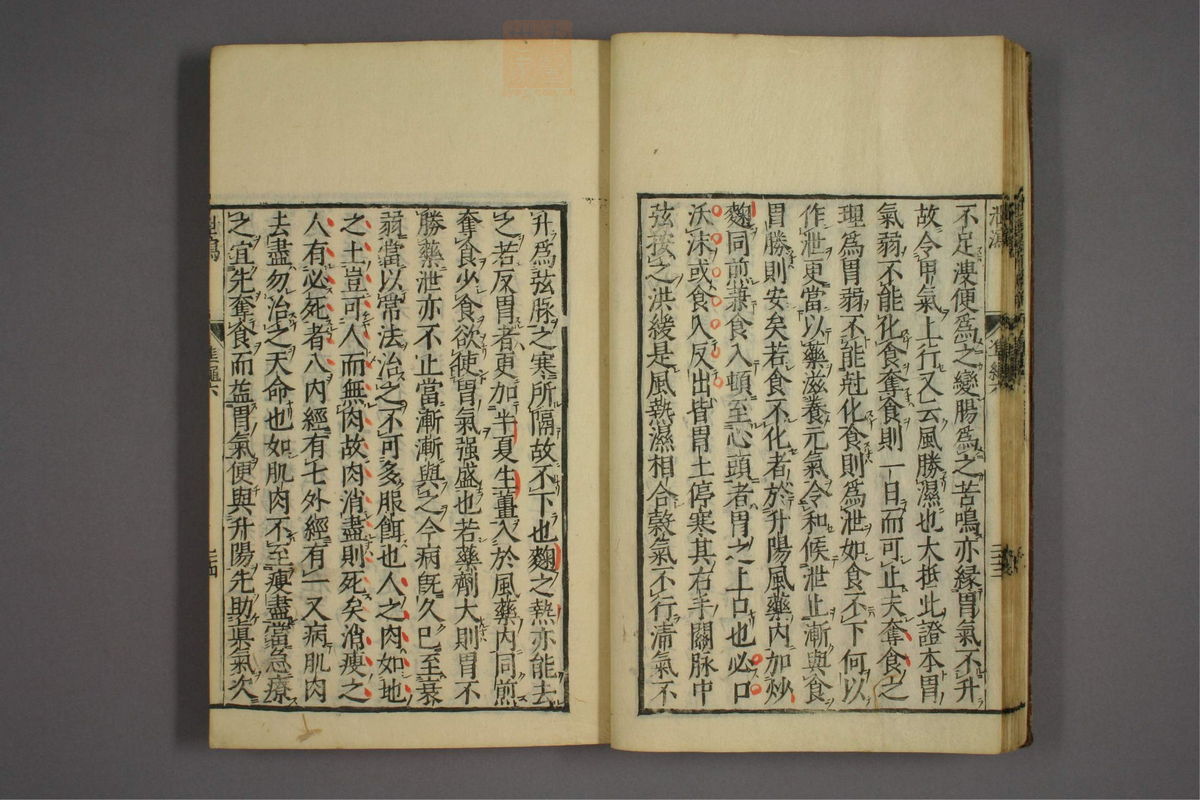 不足溲便爲之變腸爲之苦鳴亦緣胃氣不升
故令甲氣上行又云風勝濕也大抵此證本胃
氣弱不能化食奪食則一日而可止夫奪食之
理爲胃弱不能尅化食則爲泄如食不下何以
作泄更當以藥滋養元氣令和候泄止漸與食
胃勝則安矣若食不化者於升陽風藥內加炒
麴同煎兼食入頓至心頭者胃之上口也必口
沃沫或食入反出皆胃土停寒其右手關脉中
弦按之洪緩是風熱濕相合榖氣不行清氣不
升爲弦脉之寒所隔故不下也麴之熱亦能去
之若反胃者更加半夏生薑入於風藥內同煎
奪食少食欲使胃氣强盛也若藥劑大則胃不
勝藥泄亦不止當漸漸與之今病旣久已至衰
弱當以常法治之不可多服餌也人之肉如地
之土豈可人而無肉故肉消盡則死矣消瘦之
人有必死者八內經有七外經有一又病肌肉
去盡勿治之天命也如肌肉不至瘦盡當急療
之宜先奪食而益胃氣便與升陽先助眞氣次